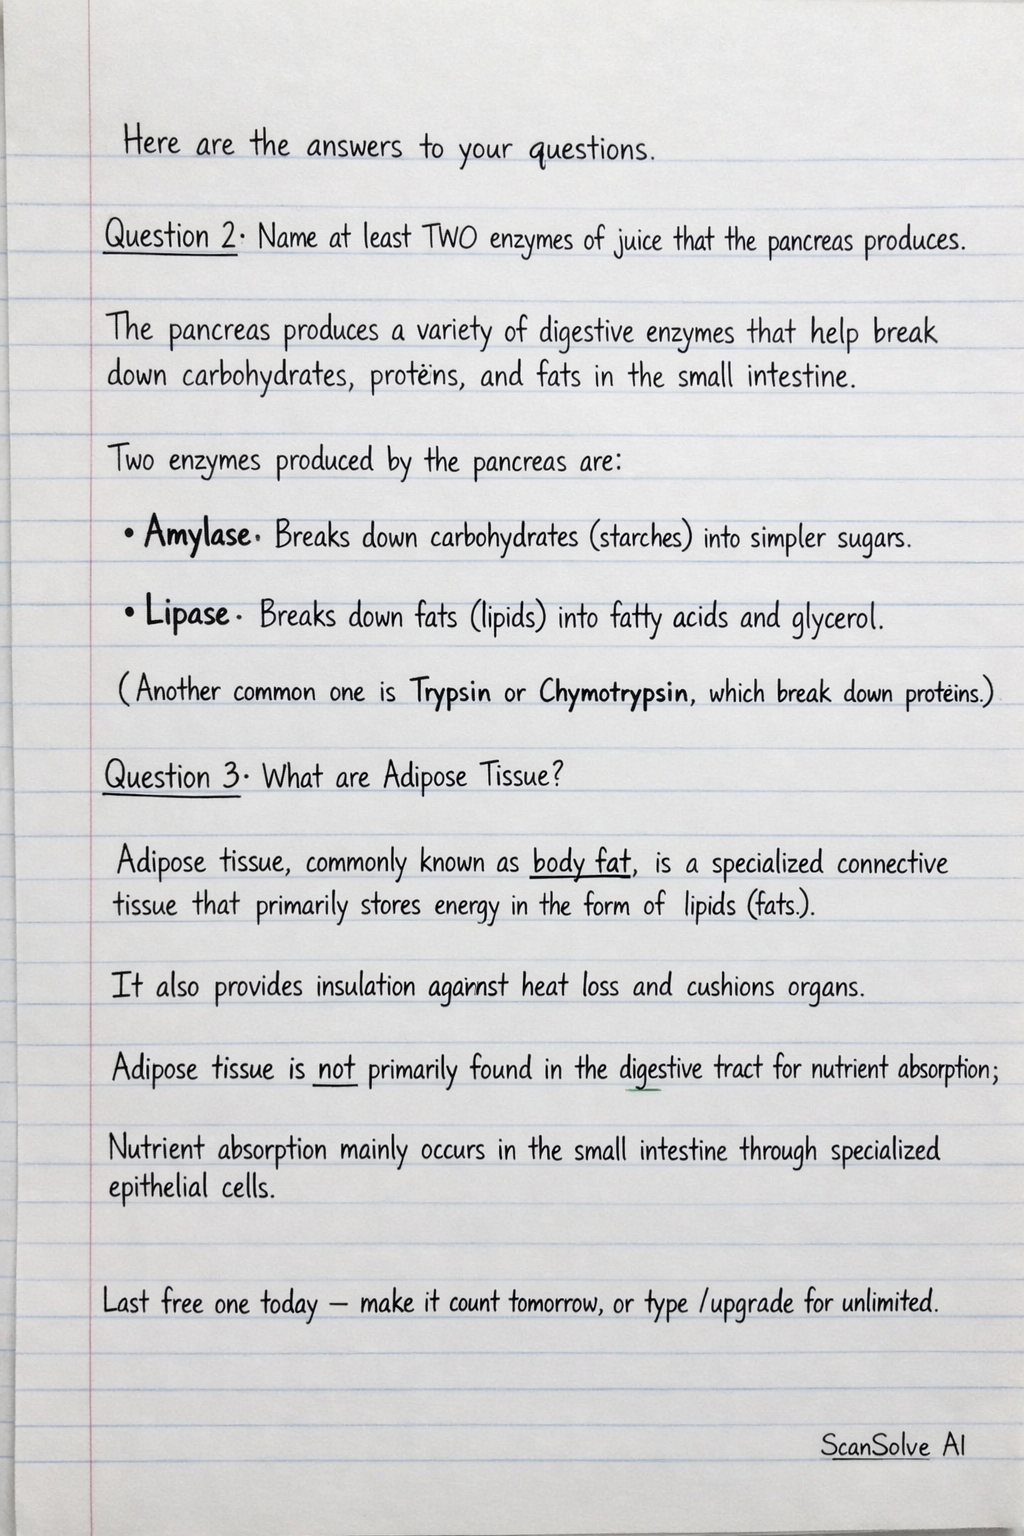 Here are the answers to your questions.
Question 2. Name at least TWO enzymes of juice that the pancreas produces.
The pancreas produces a variety of digestive enzymes that help break
down carbohydrates, protëins, and fats in the small intestine.
Two enzymes produced by the pancreas are:
• Amylase. Breaks down carbohydrates (starches) into simpler sugars.
• Lipase. Breaks down fats (lipids) into fatty acids and glycerol.
(Another common one is Trypsin or Chymotrypsin, which break down protëins.)
Question 3. What are Adipose Tissue?
Adipose tissue, commonly known as body fat, is a specialized connective
tissue that primarily stores energy in the form of lipids (fats.).
It also provides insulation agaırnst heat loss and cushions organs.
Adipose tissue is not primarily found in the digestive tract for nutrient absorption;
Nutrient absorption mainly occurs in the small intestine through specialized
epithelial cells.
Last free one today – make it count tomorrow, or type /upgrade for unlimited.
ScanSolve AI